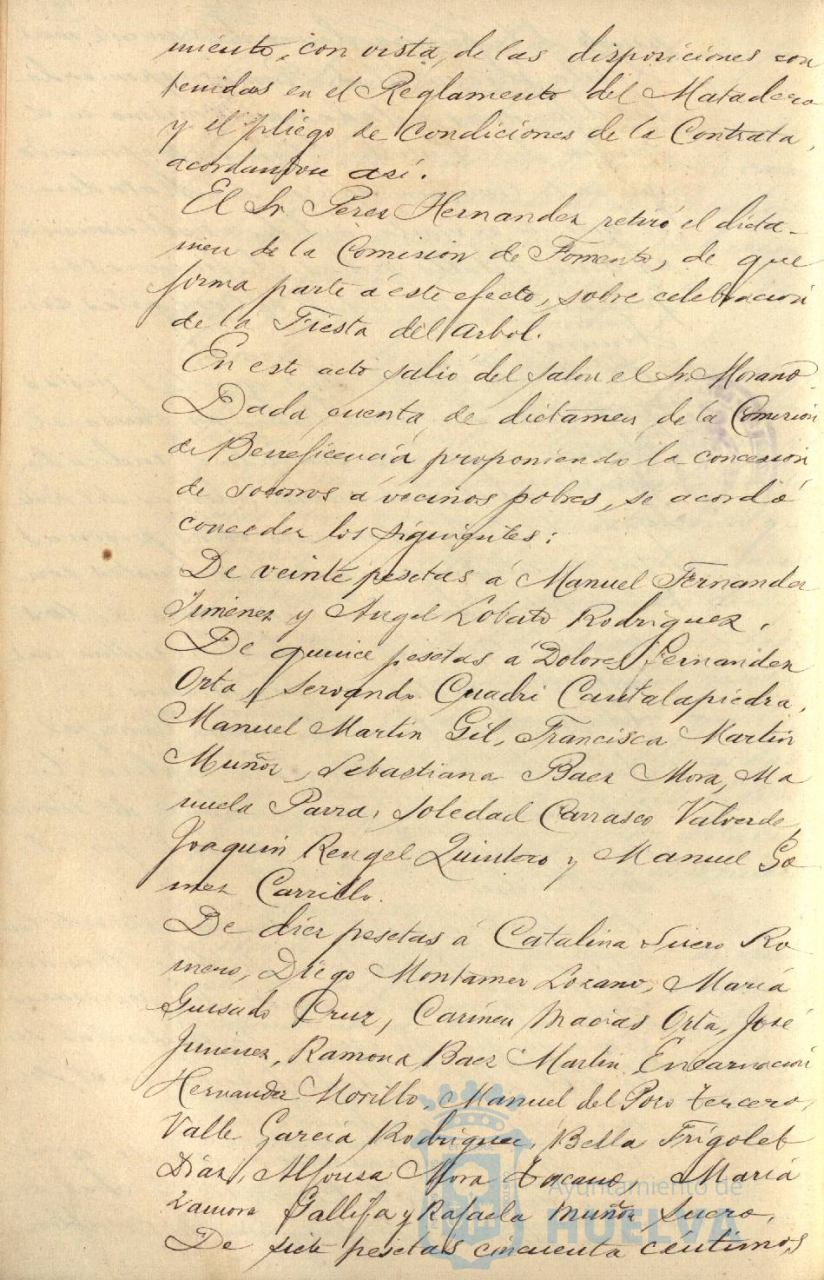 miento, con vista, de las disposiciones con
tenidas en el Reglamento del Matadero
y el pliego de condiciones de la Contrata,
acordandose así.
El Sr. Perez Hernandez retiró el dicta-
men de la Comisión de Fomento, de que
forma parte á este efecto, sobre celebración
de la Fiesta del arbol.
En este acto salió del salon el Sr. Morano.
Dada cuenta de dictamen de la Comisión
de Beneficencia proponiendo la concesión
de socorros á vecinos pobres, se acordó
conceder los siguientes:
De veinte pesetas á Manuel Fernandez
Jimenez y Angel Lobato Rodriguez.
De quince pesetas á Dolores Fernandez
Orta, Servando Cuadri Cantalapiedra,
Manuel Martin Gil, Francisca Martin
Muñoz, Sebastiana Baez Mora, Ma
nuela Parra, Soledad Carrasco Valverde,
Joaquin Rengel Quintero y Manuel Go
mez Carrillo.
De diez pesetas á Catalina Suero Ro
mero, Diego Montaner Lozano, María
Guisado Cruz, Carmen Macias Orta, José
Jimenez, Ramona Baez Martin, Encarnación
Hernandez Morillo, Manuel del Pozo tercero,
Valle García Rodriguez, Bella Frigolet
Diaz, Alfonsa Mora Toscano María
Zamora Gallifa y Rafaela Muñoz Suero.
De siete pesetas cincuenta centimos,
Ayuntamiento de
HUELVA